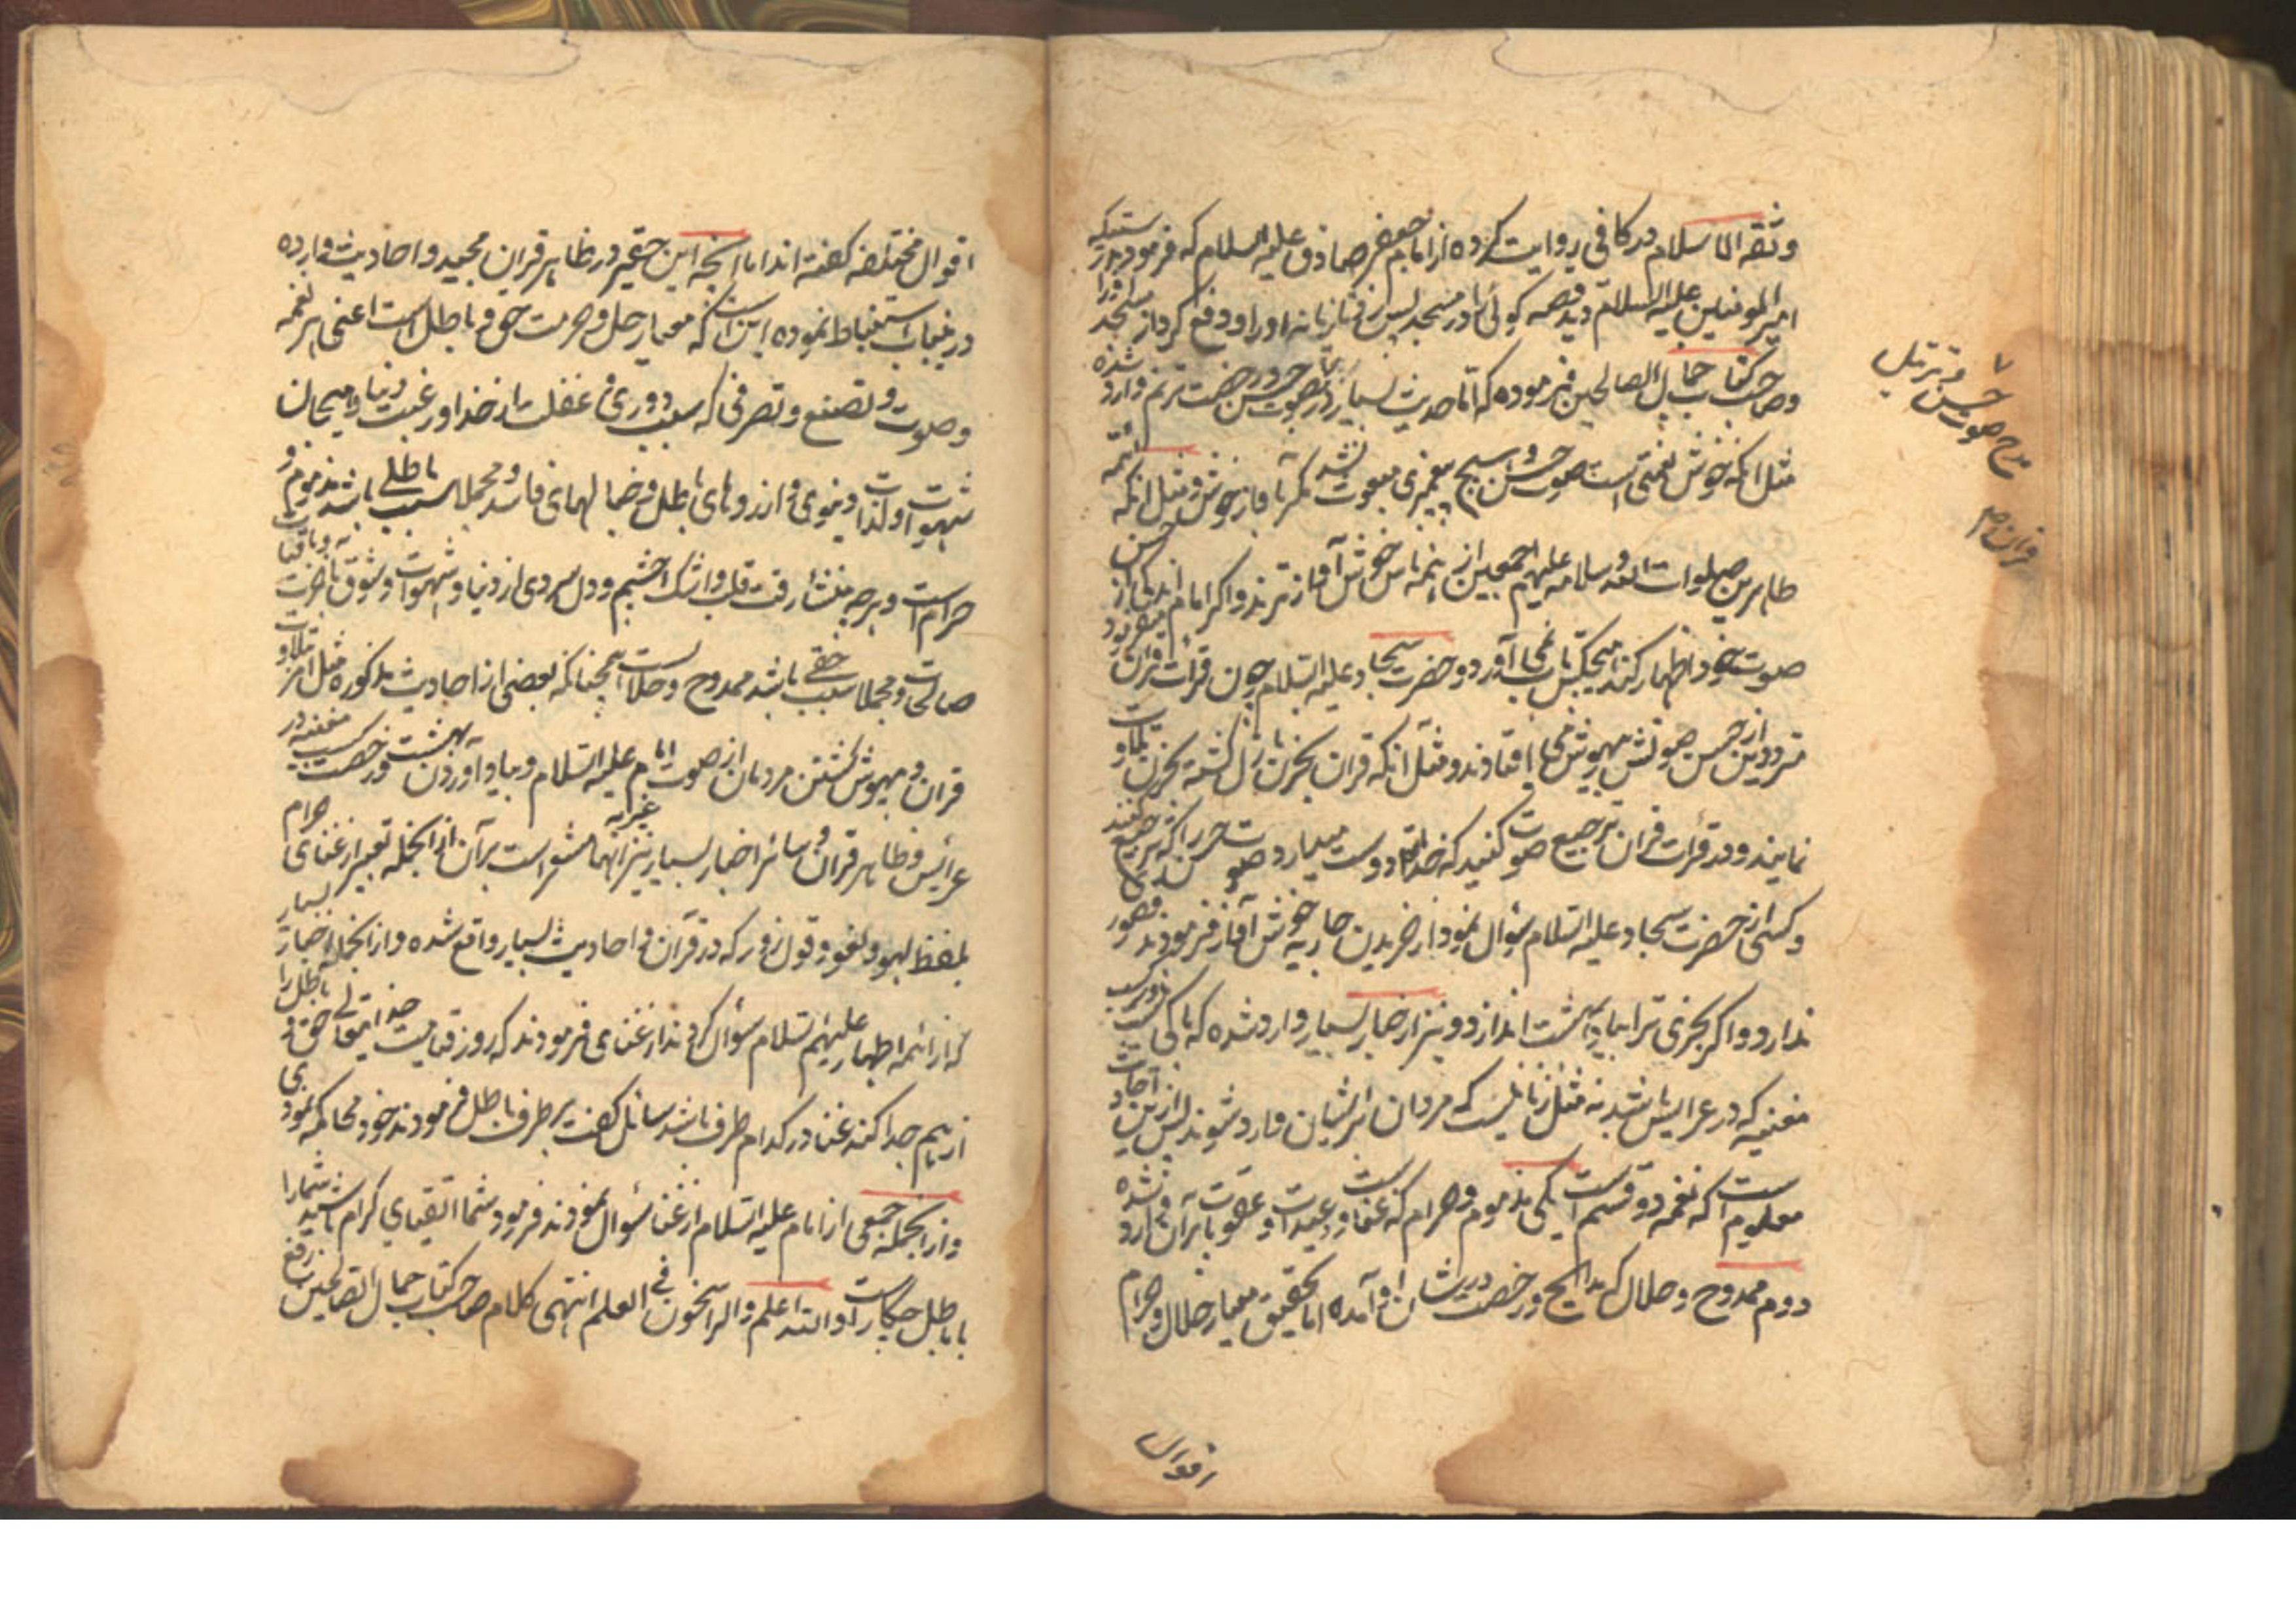 وثقه الاسلام در کافی روایت کرده از امام جعفر صادق علیه السلام که فرمود بدرستیکه
امیر المومنین علیه السلام دید قصه گوئی را در مسجد پس زد بتازیانه او را و دفع کرد از مسجد
وصاحب کتاب جمال الصالحین فرموده که اما حدیث بسیار در صوت حسن و رخصت ترنم وارد شده
مثل انکه خوش نغمتی است صوت حسن و هیچ پیغمبری مبعوث نشد مگر با واز خوش و مثل انکه ائمه
طاهرین صلوات الله و سلامه علیهم اجمعین از همه ناس خوش آواز ترند و اگر امام اندکی از حسن
صوت خود اظهار کند هیچکس تاب نمی آورد و حضرت سجاد علیه السلام چون قرائت قران میفرمود
مترددین از حسن صوتش بیهوش می افتادند و مثل انکه قران بحزن نازل گشته بحزن تلاوت
نمایند و در قرائت قران ترجیع صوت کنید که خدایتعالی دوست میدارد صوت حسن را که ترجیع کنند
وکسی از حضرت سجاد علیه السلام سؤال نمود از خریدن جاریه خوش آواز فرمودند قصور
ندارد و اگر بخری ترا بیاد بهشت اندازد و نیز از اخبار بسیار وارد شده که باکی نیست کسب
مغنیه که در عرایس باشد نه مثل زنانیست که مردان بر ایشان وارد شوند پس ازین
معلوم است که نغمه دو قسم است یکی مذموم و حرام که غناست و وعید و عقوبت بر آن وارد شده
دوم ممدوح و حلال که مدایح و رخصت در شان او آمده اما تحقیق معیار حلال و حرام
اقوال
مدح صوت حسن و ترتیل
قران
اقوال مختلفه گفته اند اما انچه این حقیر در ظاهر قران مجید و احادیث وارده
درینباب استنباط نموده اینست که معیار حل و حرمت حق و باطل است اعنی هر نغمه
وصوت و تصنع و تصرفی که سبب دوری و غفلت از خدا و رغبت دنیا و هیجان
شهوات و لذات دنیوی و ارزوهای باطل و خیالهای فاسد و مجملا سبب باطلی باشد مذموم و
حرام است و هر چه منشاء رقت قلب و اشک چشم و دل سردی از دنیا و شهوات و شوق باخرت
صالحات و مجملا سبب حقی باشد ممدوح و حلالست همچنانکه بعضی از احادیث مذکوره مثل امر تلاوت
قران و بیهوش گشتن مردمان از صوت امام علیه السلام و بیاد اوردن بهشت و رخصت کسب مغنیه در
عرائس و ظاهر قران و سائر اخبار بسیار نیز انها مشعر است بر آن از انجمله تعبیر از غنای حرام
بلفظ لهو و لغو و قول زور که در قرآن و احادیث بسیار واقع شده و از انجمله اخبار بسیار
که از ائمه اطهار علیهم السلام سؤال کردند از غنای فرمودند که روز قیامت خدایتعالی حق و باطل را
از هم جدا کند غنا در کدام طرف باشد سائل گفت بر طرف باطل فرمودند خود محاکمه نمودی
واز انجمله جمعی از امام علیه السلام از غنا سؤال نمودند فرمود شما اتقیای کرام باشید شما را
با باطل چکار است و الله اعلم و الراسخون فی العلم انتهی کلام صاحب کتاب جمال الصالحین